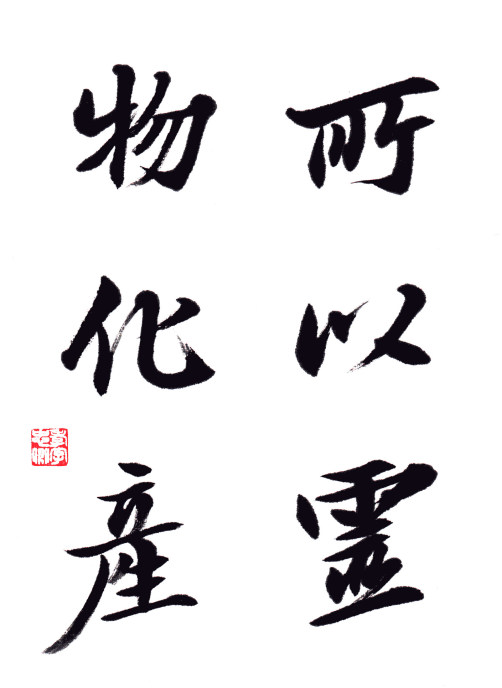 所以靈
物化產